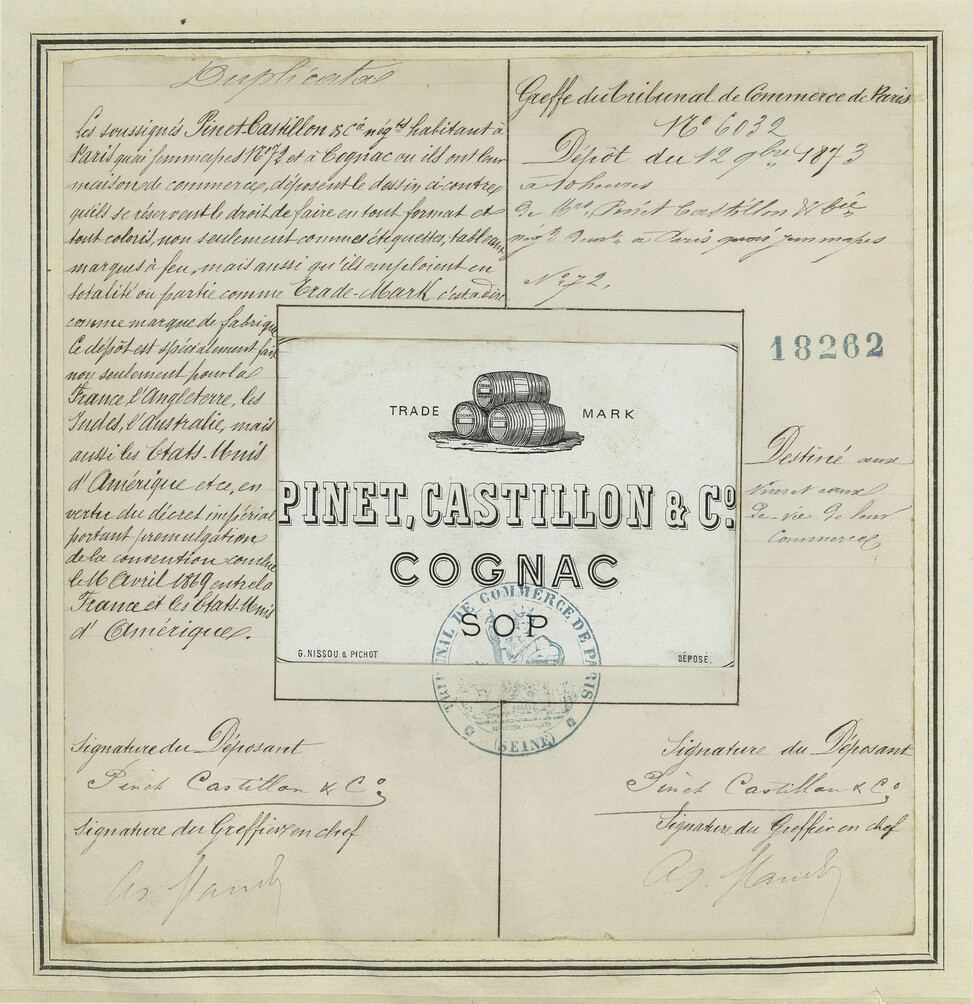 Duplicata
Les soussignés Pinet Castillon & Cº négts habitant à
Paris quai Jemmapes Nº 72 et à Cognac ou ils ont leur
maison de commerce, déposent le dessin ci-contre
qu'ils se réservent le droit de faire en tout format et
tout coloris, non seulement comme étiquettes, tableaux
marques à feu, mais aussi qu'ils emploient en
totalité ou partie comme Trade-Mark c'est à dire
comme marque de fabrique
Ce dépôt est spécialement fait
non seulement pour la
France l'Angleterre, les
Indes, l'Australie, mais
aussi les Etats-Unis
d'Amérique etc, en
vertu du décret impérial
portant promulgation
de la convention conclue
le 16 Avril 1869 entre la
France et les Etats-Unis
d'Amérique.
Signature du Déposant
Pinet Castillon & Cº
Signature du Greffier en chef
Greffe du Tribunal de Commerce de Paris
Nº 6032
Dépôt du 12 9bre 1873
à 10 heures
de Mrs. Pinet Castillon & Cie
négts demt à Paris quai Jemmapes
Nº 72.
18262
Destiné aux
vins et eaux
de vie de leur
Commerce
TRADE MARK
COGNAC
COGNAC
COGNAC
PINET, CASTILLON & Cº.
COGNAC
SOP
G. NISSOU & PICHOT
DÉPOSÉ.
TRIBUNAL DE COMMERCE DE PARIS
(SEINE)
Signature du Déposant
Pinet Castillon & Cº
Signature du Greffier en chef